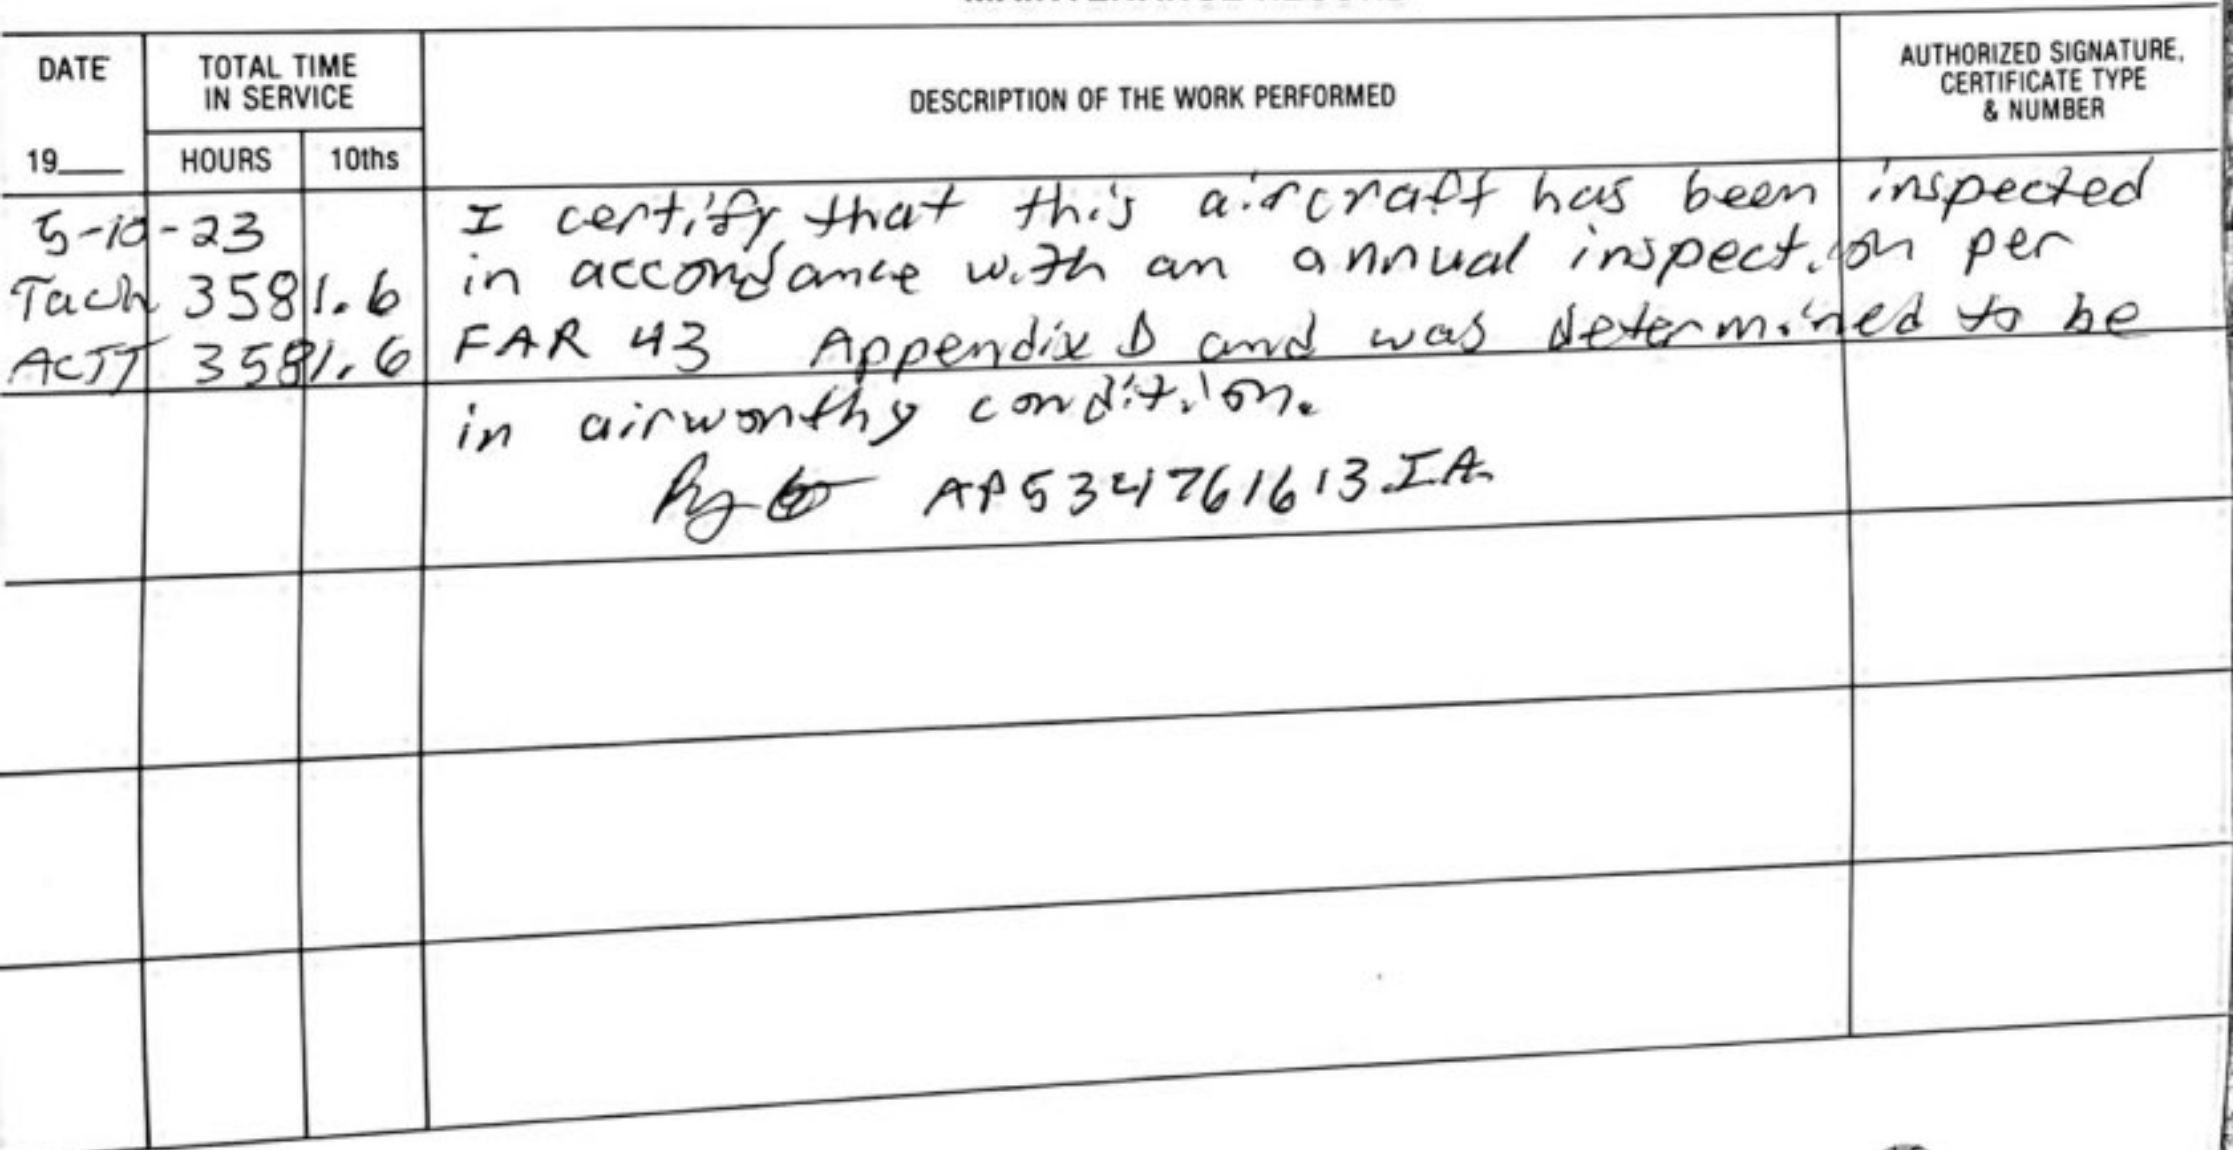 DATE
TOTAL TIME
IN SERVICE
DESCRIPTION OF THE WORK PERFORMED
AUTHORIZED SIGNATURE,
CERTIFICATE TYPE
& NUMBER
19___
HOURS
10ths
5-10-23
Tach 3581.6
ACTT 3581.6
I certify that this aircraft has been inspected
in accordance with an annual inspection per
FAR 43 Appendix D and was determined to be
in airworthy condition.
AP534761613 IA.